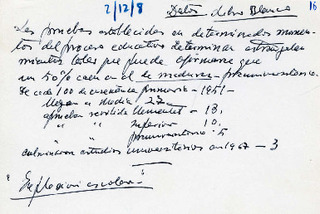 2/12/8 Datos Libro Blanco 16
Las pruebas establecidas en determinados momen-
tos del proceso educativo determinan estrangula-
mientos tales que puede afirmarse que
un 50% caen en el de madurez - preuniversitario.
De cada 100 de enseñanza primaria - 1951 -
llegan a media 27
aprueban reválida elemental - 18.
" " superior 10.
" preuniversitario: 5
culminaron estudios universitarios en 1967 - 3
"Explosión escolar"